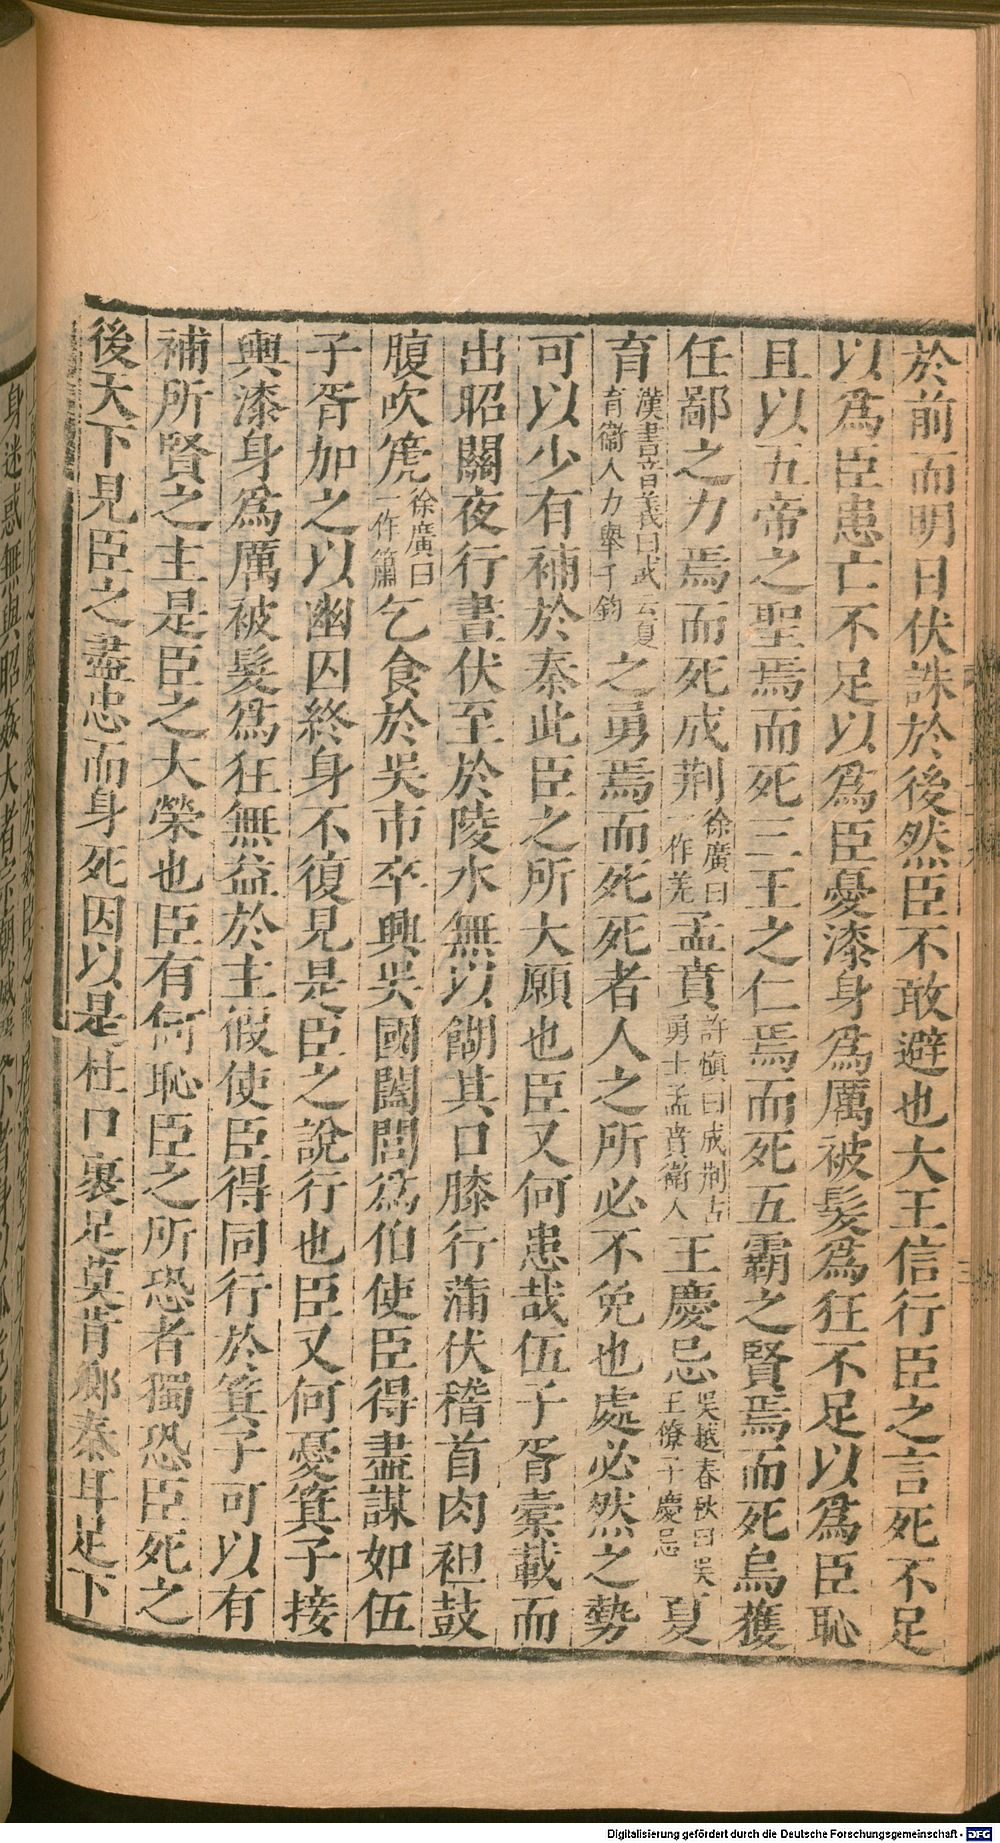 於前而明日伏誅於後然臣不敢避也大王信行臣之言死不足
以爲臣患亡不足以爲臣憂漆身爲厲被髮爲狂不足以爲臣恥
且以五帝之聖焉而死三王之仁焉而死五霸之賢焉而死烏獲
任鄙之力焉而死成荆徐廣曰一作羌孟賁許慎曰成荆古勇士孟賁衞人王慶忌吳越春秋曰吳王僚子慶忌夏
育漢書音義曰或云夏育衞人力舉千鈞之勇焉而死死者人之所必不免也處必然之勢
可以少有補於秦此臣之所大願也臣又何患哉伍子胥橐載而
出昭關夜行晝伏至於陵水無以餬其口膝行蒲伏稽首肉袒鼓
腹吹箎徐廣曰一作簫乞食於吳市卒興吳國闔閭爲伯使臣得盡謀如伍
子胥加之以幽囚終身不復見是臣之說行也臣又何憂箕子接
輿漆身爲厲被髮爲狂無益於主假使臣得同行於箕子可以有
補所賢之主是臣之大榮也臣有何恥臣之所恐者獨恐臣死之
後天下見臣之盡忠而身死因以是杜口裹足莫肯鄉秦耳足下
Digitalisierung gefördert durch die Deutsche Forschungsgemeinschaft - DFG